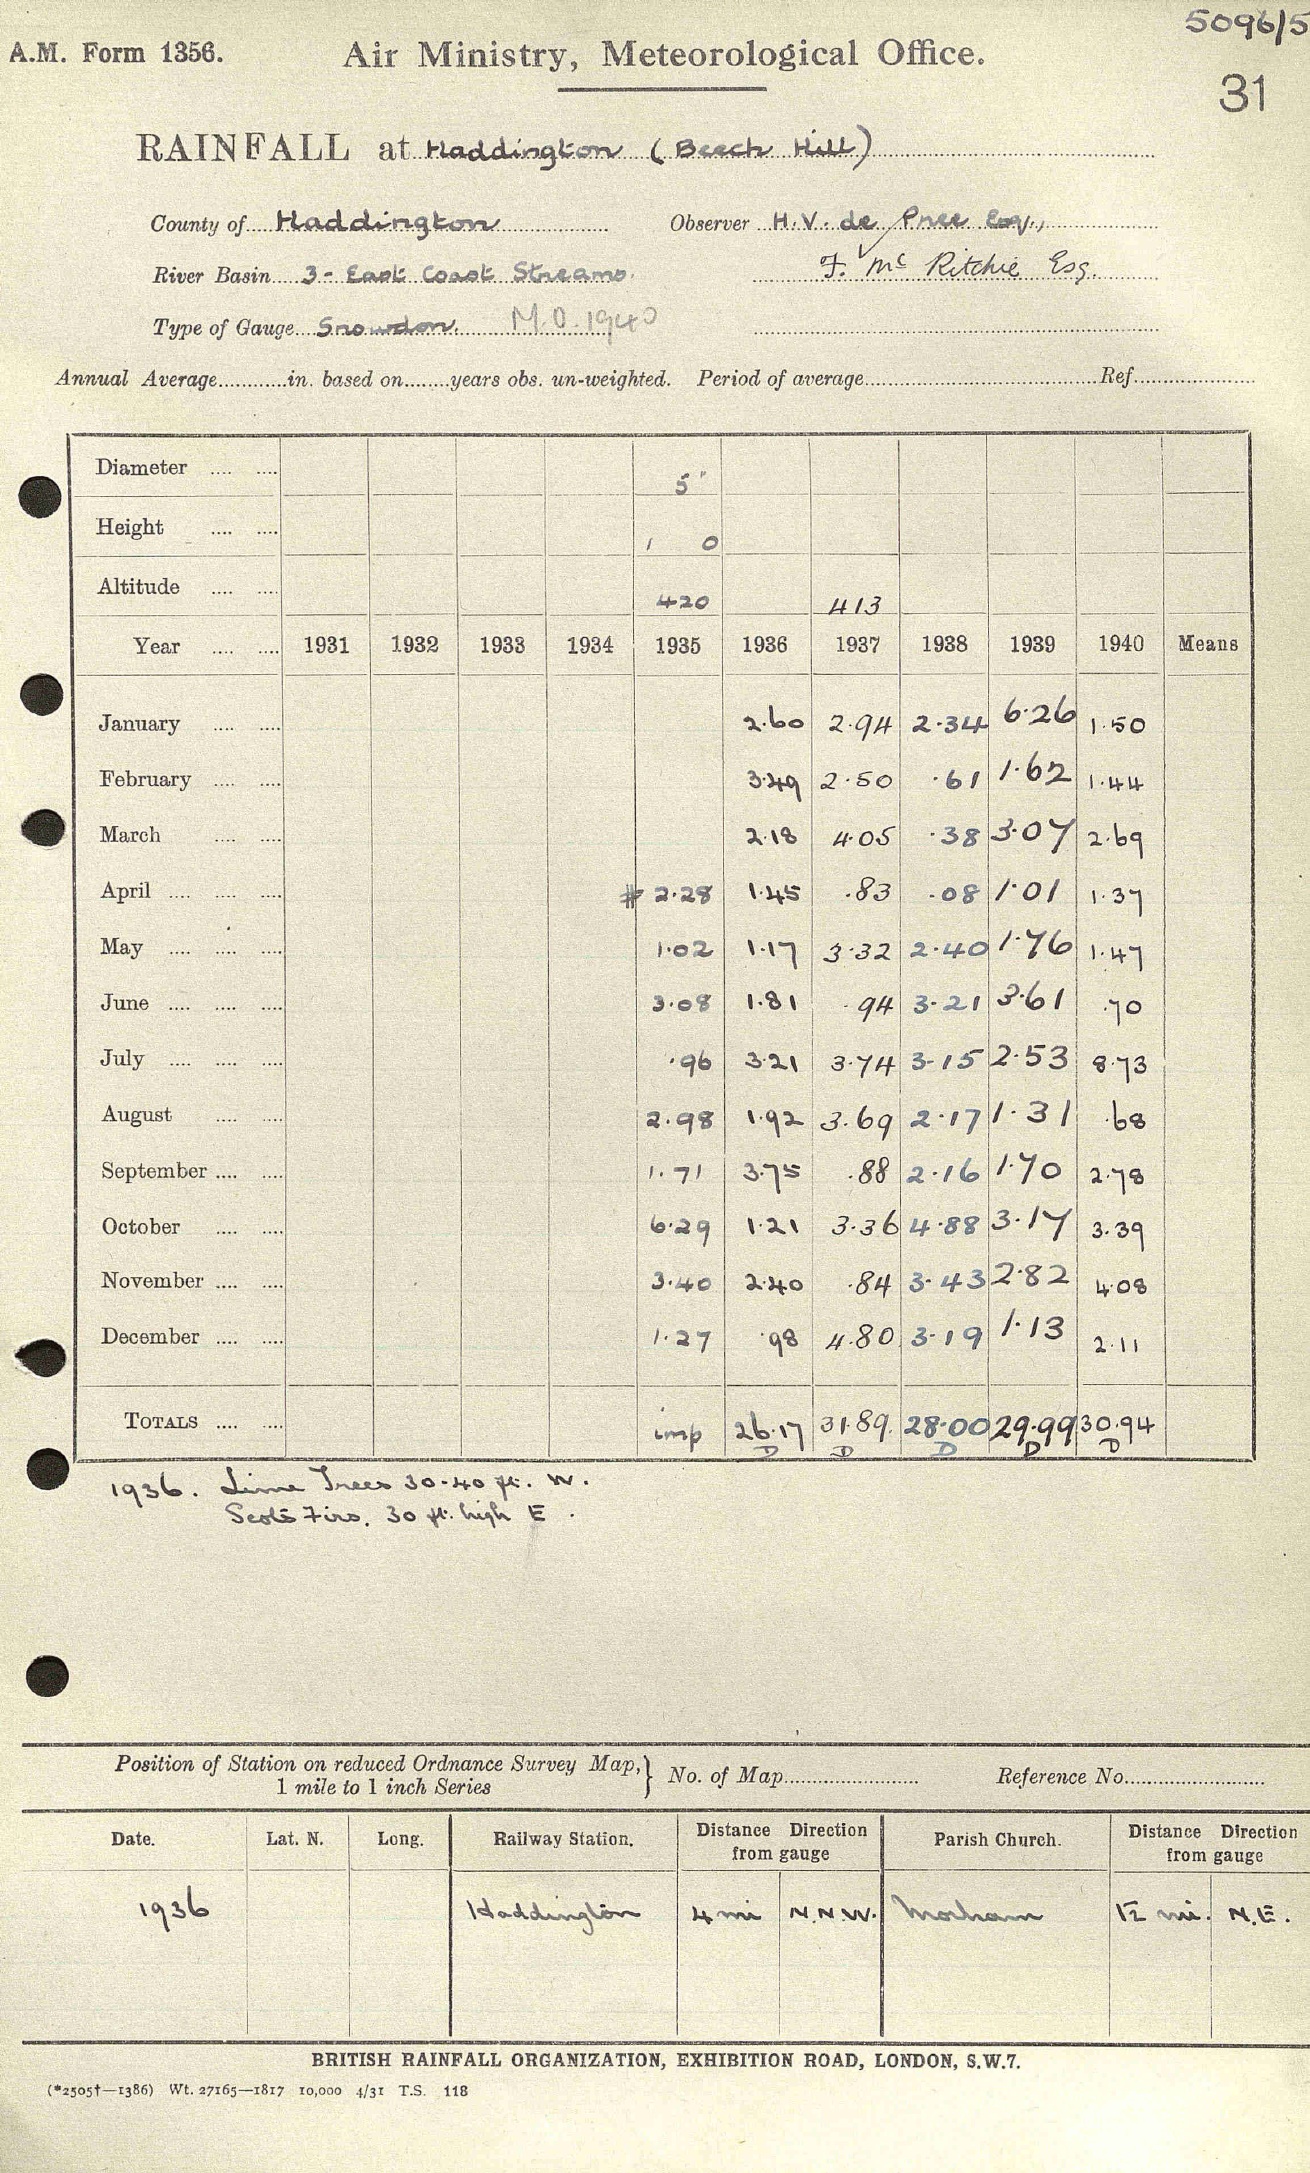 5096/5
A.M. Form 1356. Air Ministry, Meteorological Office.
31
RAINFALL at Haddington (Beech Hill)
County of Haddington Observer H.V. de Pree Esq.,
River Basin 3 - East Coast Streams. F. Mc Ritchie Esq.
Type of Gauge Snowdon. M.O. 1940
Annual Average in. based on years obs. un-weighted. Period of average Ref.
Diameter 5"
Height 1 0
Altitude 420 413
Year 1931 1932 1933 1934 1935 1936 1937 1938 1939 1940 Means
January 2.60 2.94 2.34 6.26 1.50
February 3.49 2.50 .61 1.62 1.44
March 2.18 4.05 .38 3.07 2.69
April # 2.28 1.45 .83 .08 1.01 1.37
May 1.02 1.17 3.32 2.40 1.76 1.47
June 3.08 1.81 .94 3.21 3.61 .70
July .96 3.21 3.74 3.15 2.53 8.73
August 2.98 1.92 3.69 2.17 1.31 .68
September 1.71 3.75 .88 2.16 1.70 2.78
October 6.29 1.21 3.36 4.88 3.17 3.39
November 3.40 2.40 .84 3.43 2.82 4.08
December 1.27 .98 4.80 3.19 1.13 2.11
TOTALS imp 26.17 31.89 28.00 29.99 30.94
D D D D D
1936. Lime Trees 30-40 ft. W.
Scots Firs. 30 ft. high E.
Position of Station on reduced Ordnance Survey Map, 1 mile to 1 inch Series } No. of Map Reference No.
Date. Lat. N. Long. Railway Station. Distance Direction from gauge Parish Church. Distance Direction from gauge
1936 Haddington 4 mi N.N.W. Morham 1½ mi. N.E.
BRITISH RAINFALL ORGANIZATION, EXHIBITION ROAD, LONDON, S.W.7.
(*2505†—1386) Wt. 27165—1817 10,000 4/31 T.S. 118